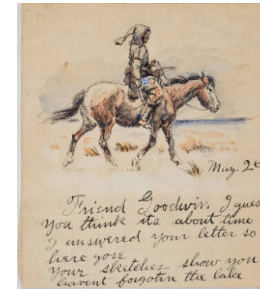 May 26
Friend Goodwin. I gues
you think its about time
I answered your letter so
here gose
your sketches show you
havent forgotin the lake